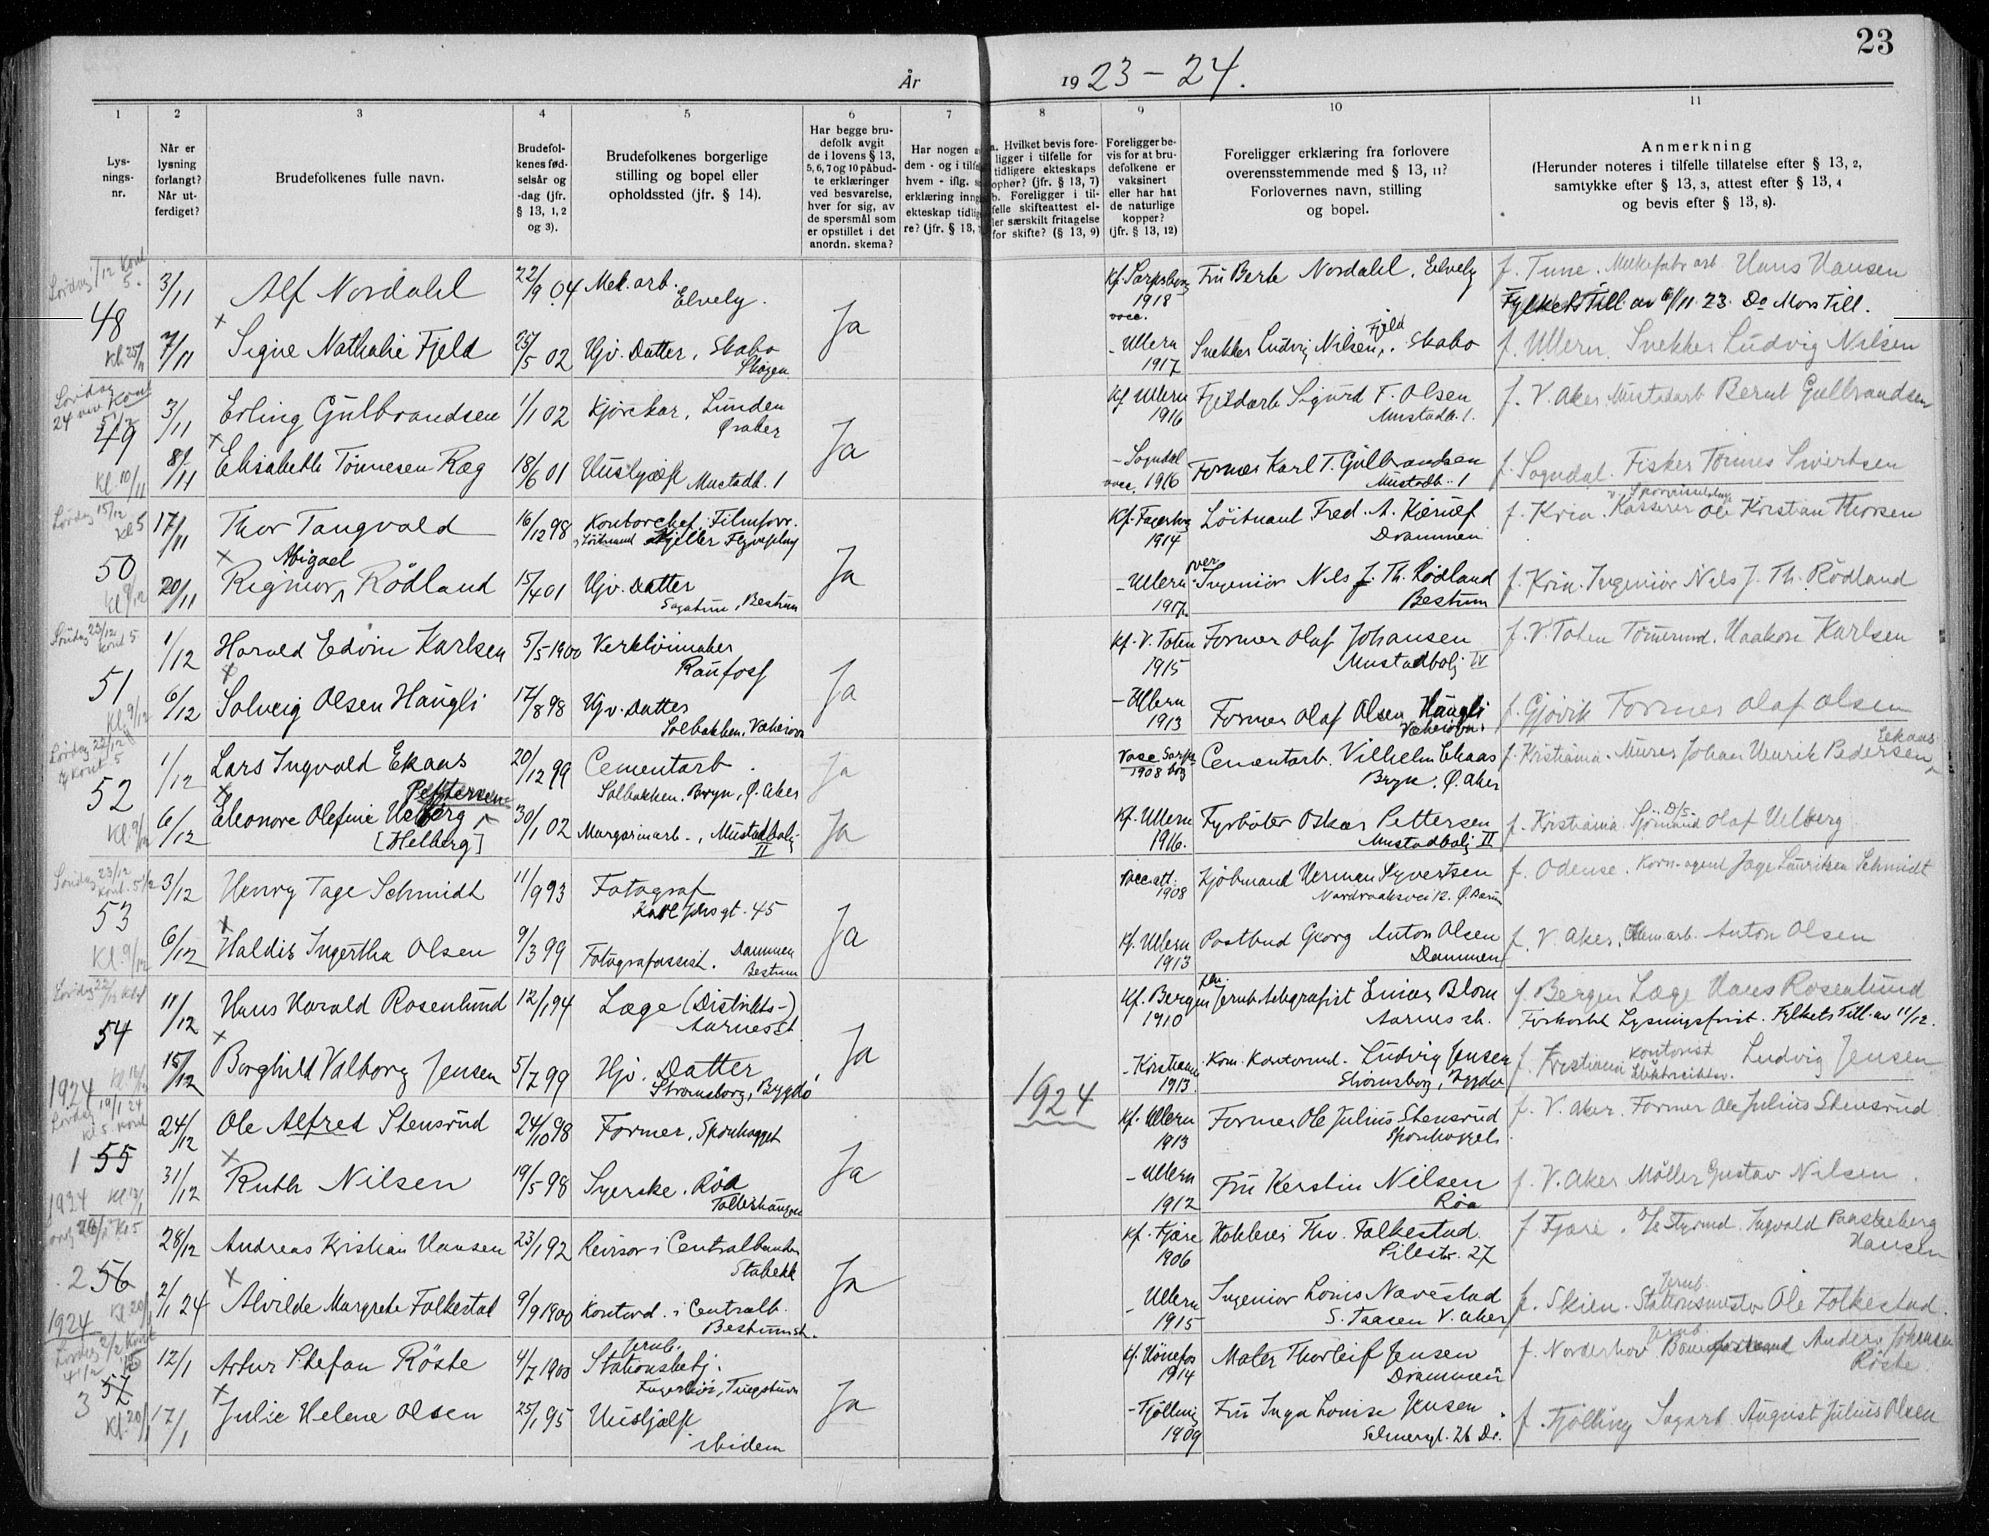 23
År 1923-24.
1
2
3
4
5
6
7
8
9
10
11
Lys-
nings-
nr.
Når er
lysning
forlangt?
Når ut-
ferdiget?
Brudefolkenes fulle navn.
Brudefol-
kenes fød-
selsår og
-dag (jfr.
§ 13, 1, 2
og 3).
Brudefolkenes borgerlige
stilling og bopel eller
opholdssted (jfr. § 14).
Har begge bru-
defolk avgit
de i lovens § 13,
5, 6, 7 og 10 påbud-
te erklæringer
ved besvarelse,
hver for sig, av
de spørsmål som
er opstillet i det
anordn. skema?
Har nogen a
dem - og i tilfel
hvem - iflg. s
erklæring inng
ekteskap tidlig
re? (jfr. § 13,
a. Hvilket bevis fore-
ligger i tilfelle for
tidligere ekteskaps
ophør? (jfr. § 13, 7)
b. Foreligger i til-
felle skifteattest el-
ler særskilt fritagelse
for skifte? (§ 13, 9)
Foreligger be-
vis for at bru-
defolkene er
vaksinert
eller har hat
de naturlige
kopper?
(jfr. § 13, 12)
Foreligger erklæring fra forlovere
overensstemmende med § 13, 11?
Forlovernes navn, stilling
og bopel.
Anmerkning
(Herunder noteres i tilfelle tillatelse efter § 13, 2,
samtykke efter § 13, 3, attest efter § 13, 4
og bevis efter § 13, 8).
Lørdag 1/12 Kont 5.
48
3/11 Alf Nordahl 22/9.04 Mek. arb. Elvely. Ja Kf. Sarpsborg 1918 vacc. Fru Berte Nordahl, Elvely f. Tune. Hans Hansen
Fylkets Till. av 6/11 23. Do Mors Till.
7/11 x Signe Nathalie Fjeld 25/5 02 Hjv. Datter, Skabo Skogen - Ullern 1917 Snekker Ludvig Nilsen Fjeld, Skabo f. Ullern. Snekker Ludvig Nilsen
Lørdag 24 nov Kont
49
3/11 Erling Gulbrandsen 1/1 02 Kjørekar, Lunden Ø. Aker Ja Kf. Ullern 1916 Sigurd F. Olsen Mustadb. 1. f. V. Aker Mustadarb Bernt Gulbrandsen
Kl 10/11
8/11 x Elisabeth Tønnesen Ræg 18/6 01 Hushjælp Mustadb. 1 - Sogndal vacc. 1916 Former Karl T. Gulbrandsen Mustadb. 1 f. Sogndal. Fisker Tønnes Sivertsen
Lørdag 15/12 Kl 5
50
17/11 Thor Tangvald 16/12 98 Kontorchef, Filmforr. Løitnant Kjeller Flyveplass Ja Kf. Fagerborg 1914 Løitnant Fred. A. Kierulf Drammen f. Kria. Kasserer v. Sporveisselskap Ole Kristian Thorsen
20/11 x Rigmor Abigael Rødland 15/4 01 Hjv. Datter Sagatun, Bestum - Ullern 1917 Over Ingeniør Nils J. Th. Rødland Bestum f. Kria. Ingeniør Nils J. Th. Rødland
Søndag 23/12 Kont 5
51
1/12 Harald Edvin Karlsen 5/5 1900 Verktøimaker Raufoss Ja Kf. V. Toten 1915 Former Olaf Johansen Mustadbolj IV f. V. Toten Tømmerm. Haakon Karlsen
Kl. 9/12
6/12 x Solveig Olsen Haugli 17/8 98 Hjv. Datter Solbakken, Vækerø - Ullern 1913 Former Olaf Olsen Haugli Vækerøvn. f. Gjøvik Former Olaf Olsen
Lørdag 22/12 Kont 5
52
1/12 Lars Ingvald Ekaas 20/12 99 Cementarb. Solbakken. Bryn, Ø. Aker Ja Vacc Sarpsborg 1908 Cementarb. Vilhelm Ekaas Bryn. Ø. Aker f. Kristiania. Murer Johan Henrik Pedersen Eekaas
Kl. 9/12
6/12 x Eleonore Olefine Helberg Pettersen [Helberg] 30/1 02 Margarinarb., Mustadbolj II Ja Kf. Ullern 1916. Fyrbøter Oskar Pettersen Mustadbolj II f. Kristiania Sjømand D/S Olaf Helberg
Søndag 23/12 Kont. 5 1/2
53
3/12 Henry Tage Schmidt 11/9 93 Fotograf Karl Johs gt. 45 Ja Vacc.att. 1908 Kjøbmand Herman Syvertsen Nordraaksvei 12. Ø. Bærum f. Odense. Korn-agent Jage Lauritsen Schmidt
Kl. 9/12
6/12 x Haldis Ingertha Olsen 9/3 99 Fotografassist. Dammen Bestum Kf. Ullern 1913 Postbud Georg Anton Olsen Dammen f. V. Aker. Anton Olsen
Lørdag 22/12
54
11/12 Hans Harald Rosenlund 12/1 94 Læge (Distrikts-) Aarnes st. Ja Kf. Bergen 1910 Jernb.telegrafist Einar Blom Aarnes st. f. Bergen Læge Hans Rosenlund
Forkortet Lysningsfrist. Fylkets Till. av 11/12.
15/12 x Borghild Valborg Jensen 5/7 99 Hjv. Datter Strømsborg, Bygdø - Kristiania 1913. Kom. Kontormd. Ludvig Jensen Strømsborg, Bygdø f. Kristiania Kontorist Ludvig Jensen
1924
1924
Lørdag 19/1 24 Kl 5 Kont
1 55
24/12 Ole Alfred Stensrud 24/10 98 Former, Sponhogget Ja Kf. Ullern 1913 Former Ole Julius Stensrud Sponhogget. f. V. Aker. Former Ole Julius Stensrud
31/12 x Ruth Nilsen 19/5 98 Syerske. Røa Tollerhaugen - Ullern 1912 Fru Kerstin Nilsen Røa f. V. Aker Møller Gustav Nilsen.
1924
Kl 5
2 56
28/12 Andreas Kristian Hansen 23/1 92 Revisor i Centralbanken Stabekk Ja Kf. Fjære 1906 Hoteleier Thv. Falkestad Pilestr. 27 f. Fjære. Styrmd. Ingvald Hansen
Kl. 20/1
2/1 24 x Alvilde Margrete Falkestad 9/9 1900 Kontord. i Centralb. Bestum st. - Ullern 1915 Ingeniør Louis Nævestad S. Taasen V. Aker f. Skien. Jernb. Stationsmester Ole Falkestad.
1924
Lørdag 2/2 Kont 4 1/2
3 57
12/1 Artur Stefan Røste 4/7 1900 Jernb. Stationsbetj. Ja Kf. Hønefos 1914 Maler Thorleif Jensen Drammen f. Norderhov Jernb. Baneformand Anders Johansen Røste.
Kl. 20/1
17/1 x Julie Helene Olsen 25/1 95 Hushjælp. ibidem - Tjølling 1909 Fru Inga Louise Jensen. Selmergt. 26 Dr. f. Tjølling Sagarb. August Julius Olsen